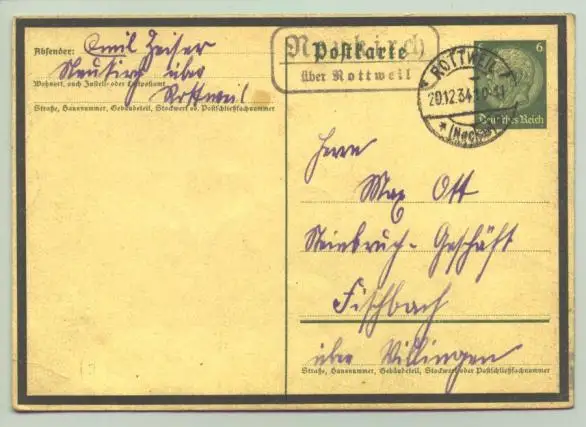 Postkarte
Neukirch
über Rottweil
Absender: Emil Zeiser
Neukirch über
Wohnort, auch Zustell- oder Leitpostamt
Rottweil
Straße, Hausnummer, Gebäudeteil, Stockwerk od. Postschließfachnummer
ROTTWEIL
20.12.34
(Neckar)
6
Deutsches Reich
Herrn
Max Ott
Steinbruch-Geschäft
Fischbach
über Villingen
Straße, Hausnummer, Gebäudeteil, Stockwerk oder Postschließfachnummer